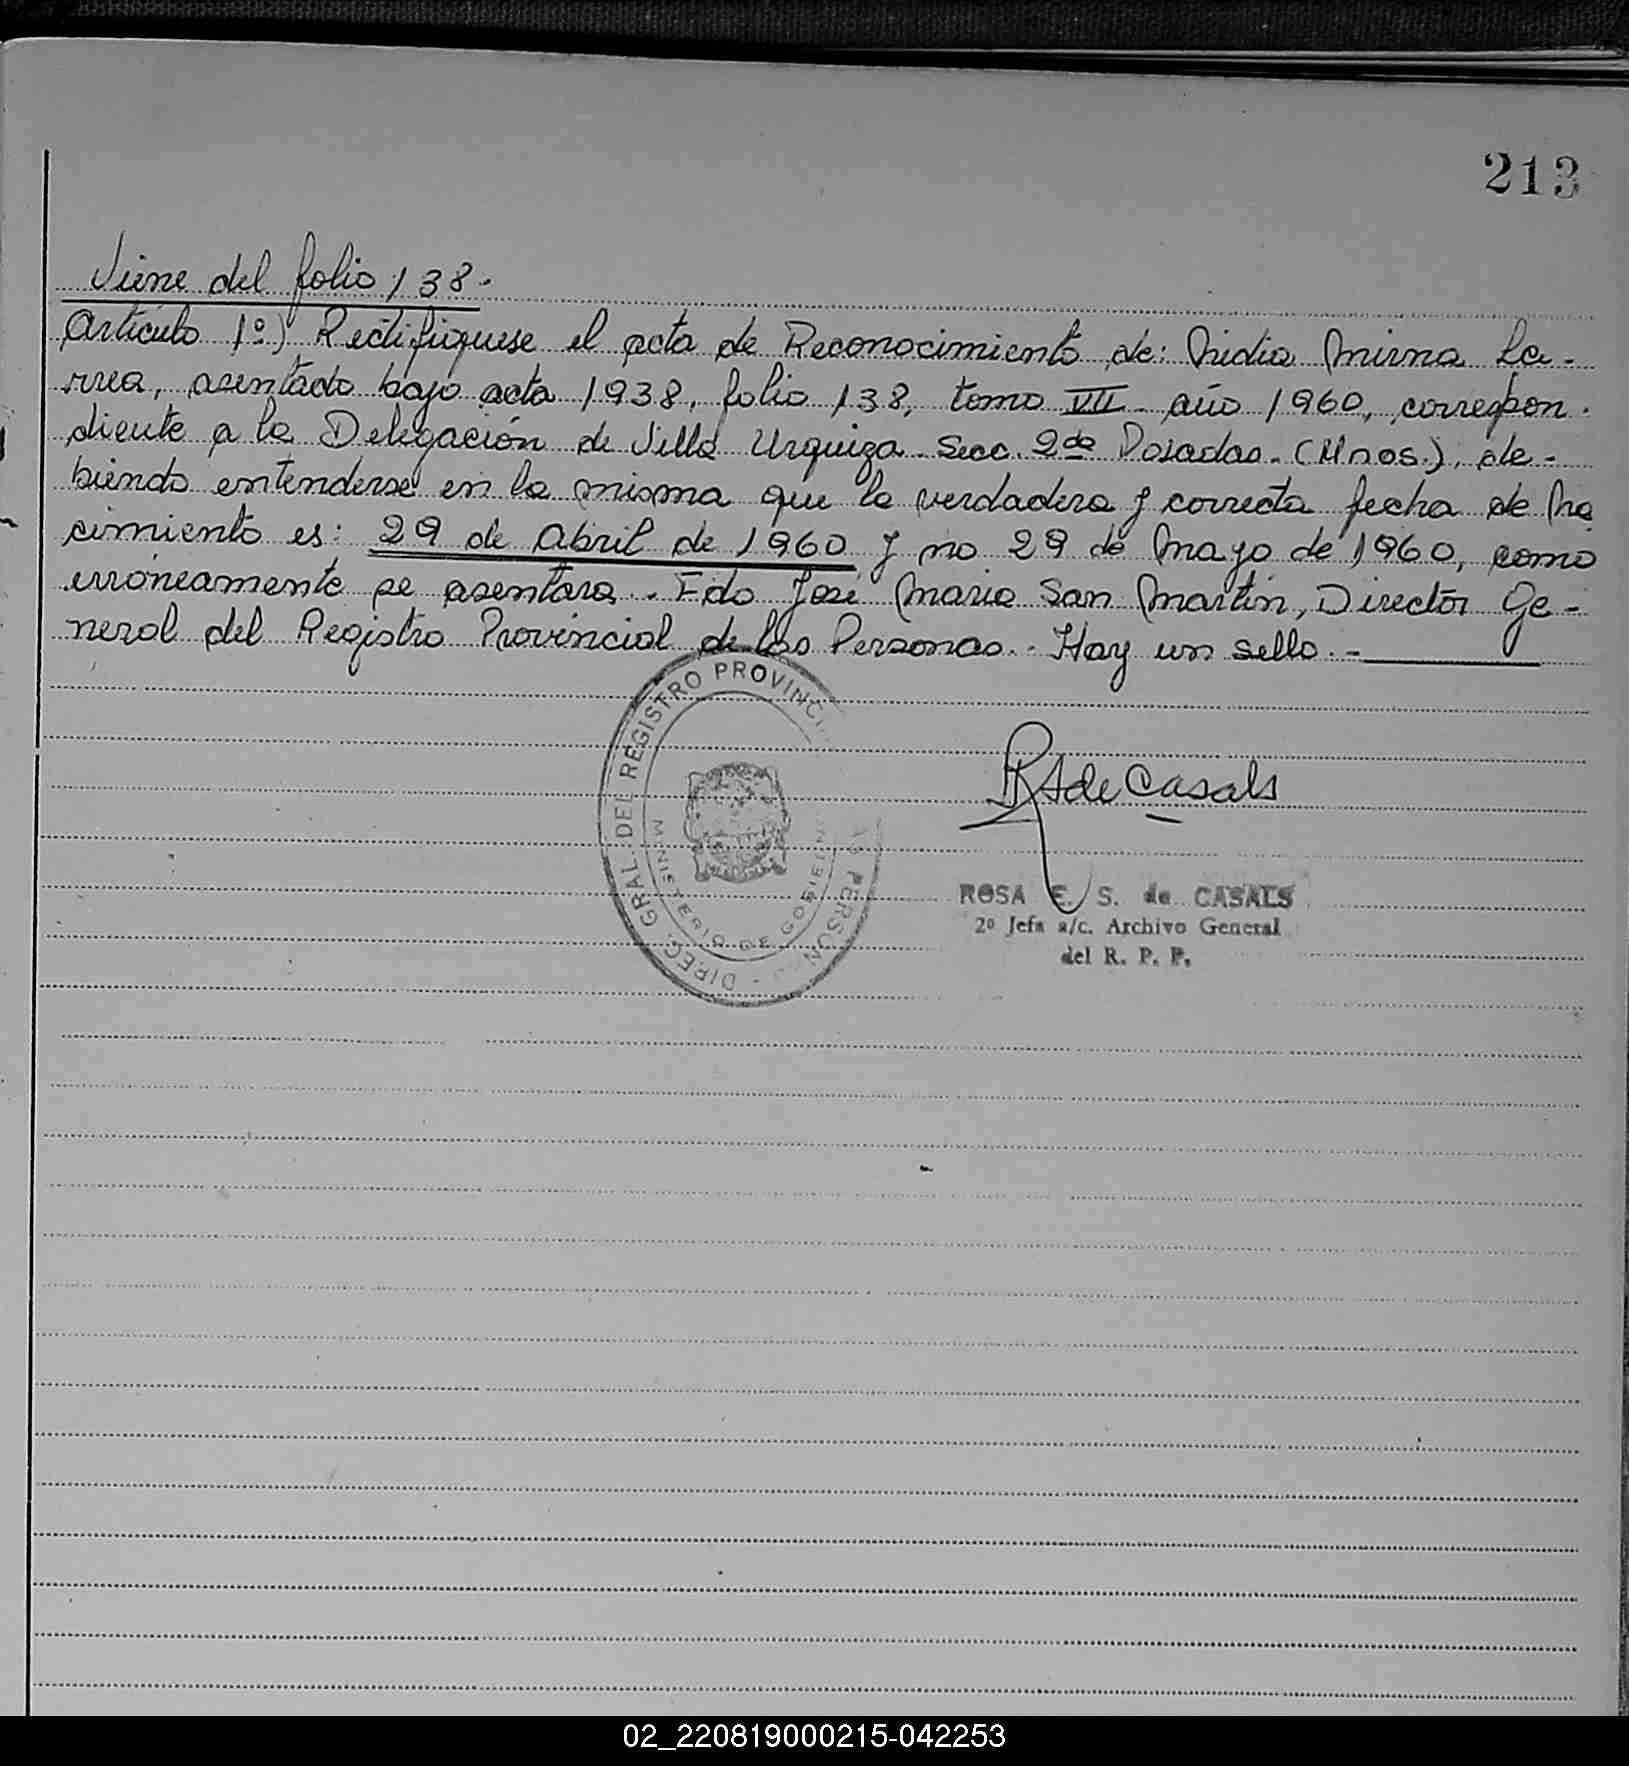 213
Viene del folio 138.
Artículo 1º) Rectifíquese el acta de Reconocimiento de: Nidia Mirna La-
rrea, asentado bajo acta 1938, folio 138, tomo VII año 1960, correspon-
diente a la Delegación de Villa Urquiza Secc. 2da Posadas. (Mnes.), de-
biendo entenderse en la misma que la verdadera y correcta fecha de Na
cimiento es: 29 de Abril de 1960 y no 29 de Mayo de 1960, como
erróneamente se asentara. Fdo José María San Martín, Director Ge-
neral del Registro Provincial de las Personas. Hay un sello.-
DIREC. GRAL. DEL REGISTRO PROVINCI PERSON
MINISTERIO DE GOBIERN
de Casals
ROSA E. S. de CASALS
2º Jefa a/c. Archivo General
del R. P. P.
02_220819000215-042253